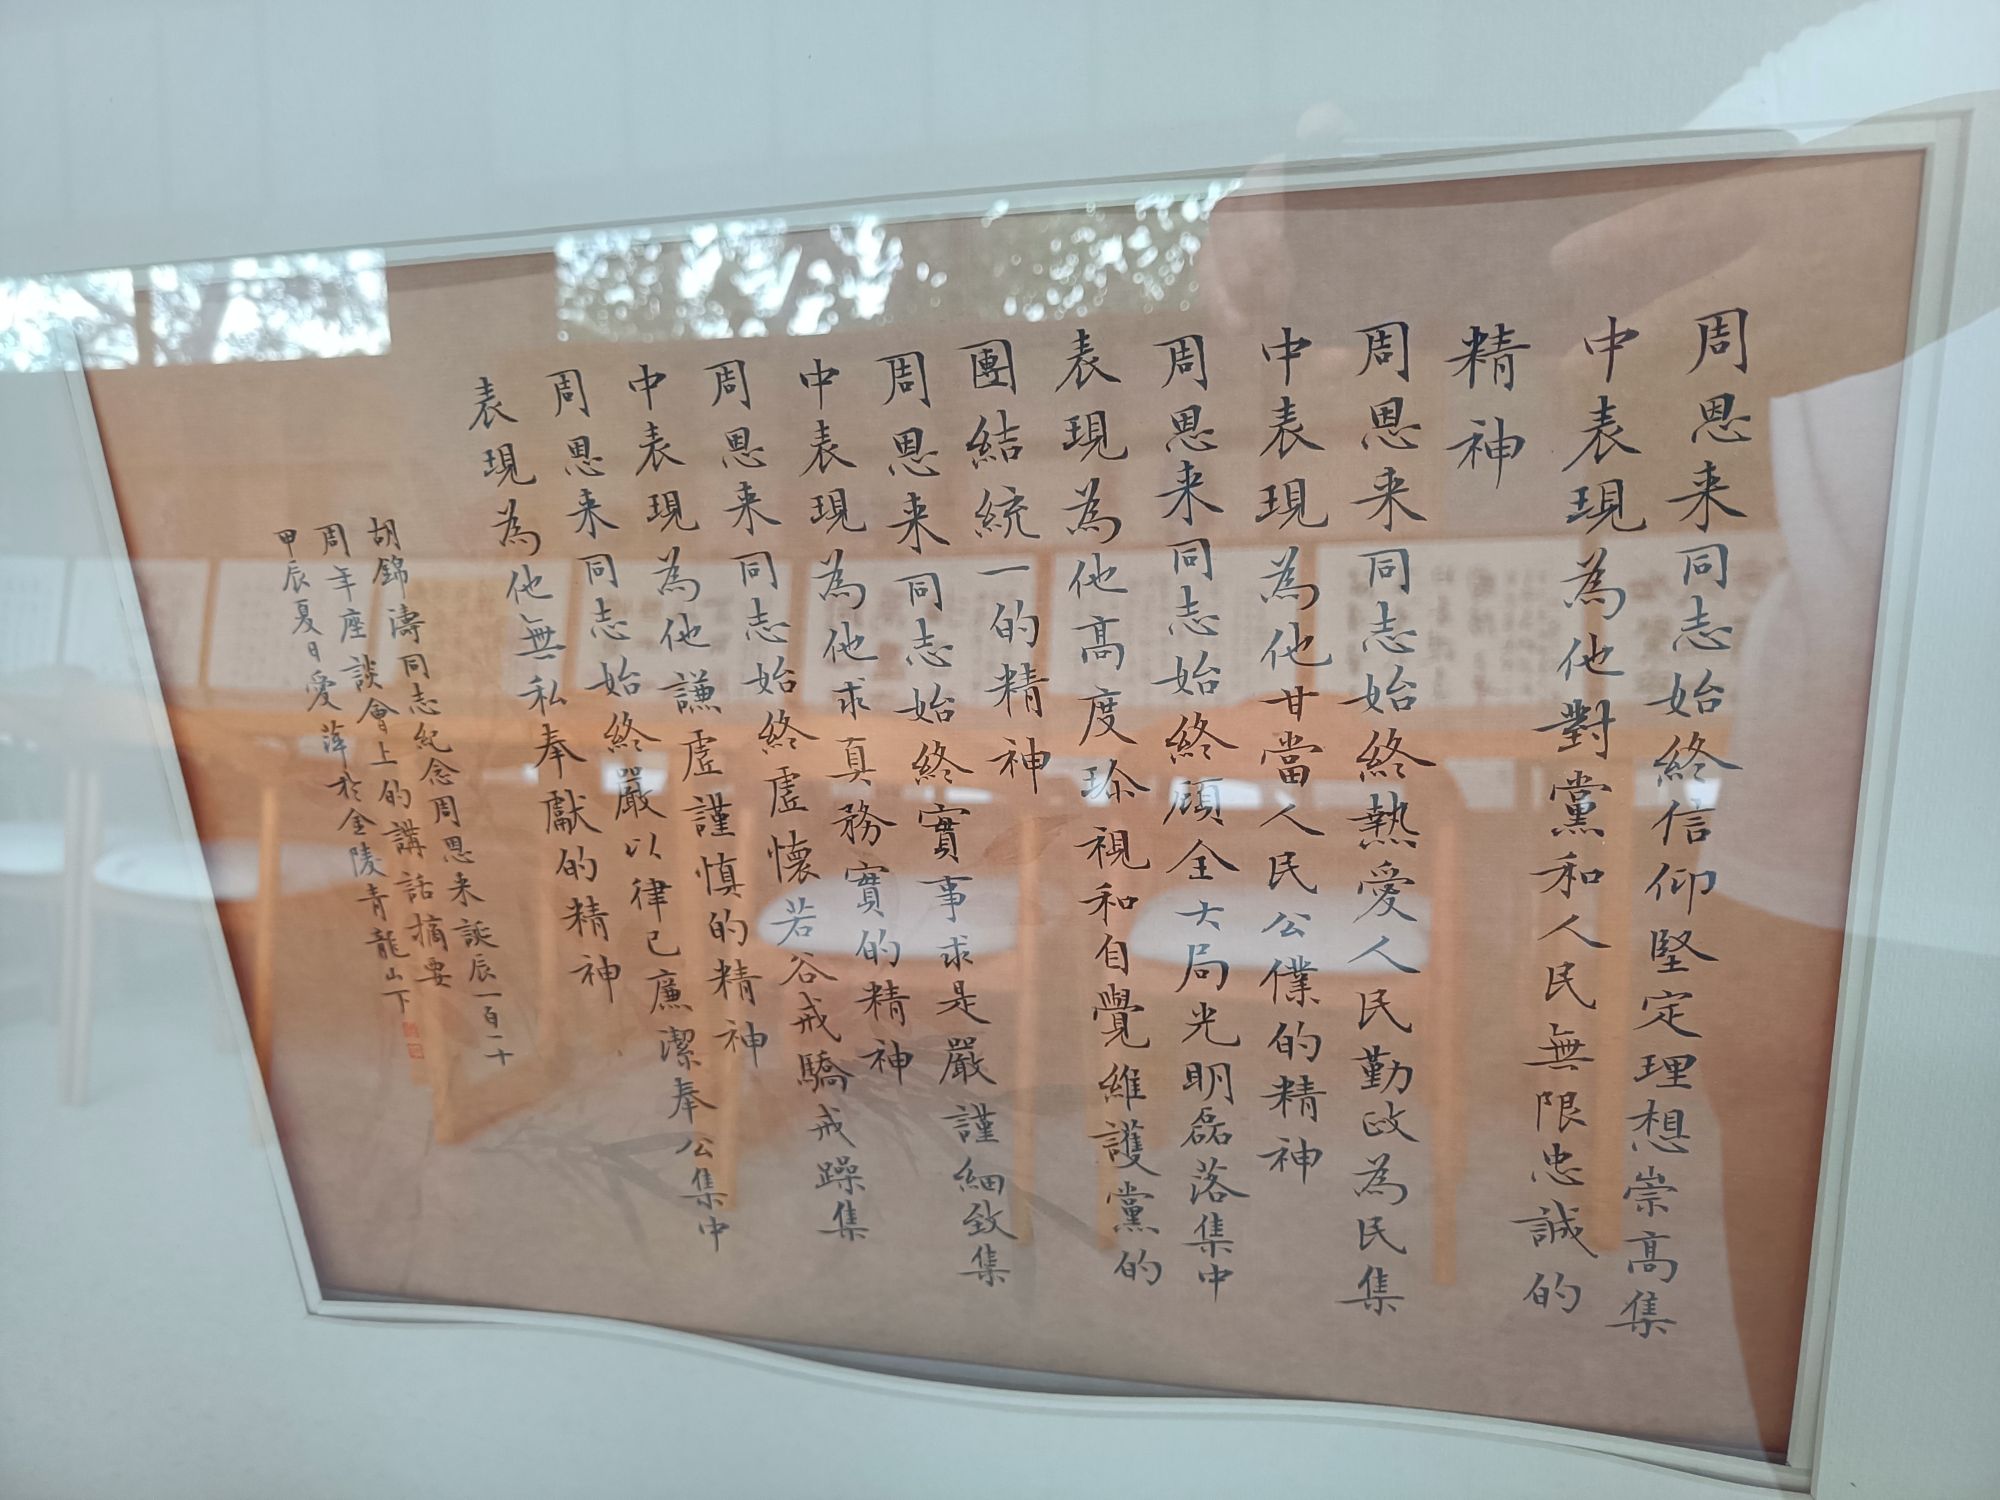 周恩来同志始終信仰堅定理想崇高集
中表現為他對黨和人民無限忠誠的
精神
周恩来同志始終熱愛人民勤政為民集
中表現為他甘當人民公僕的精神
周恩来同志始終顧全大局光明磊落集中
表現為他高度珍視和自覺維護黨的
團結統一的精神
周恩来同志始終實事求是嚴謹細致集
中表現為他求真務實的精神
周恩来同志始終虛懷若谷戒驕戒躁集
中表現為他謙虛謹慎的精神
周恩来同志始終嚴以律己廉潔奉公集中
表現為他無私奉獻的精神
胡錦濤同志紀念周恩来誕辰一百一十
周年座談會上的講話摘要
甲辰夏日愛萍於金陵青龍山下